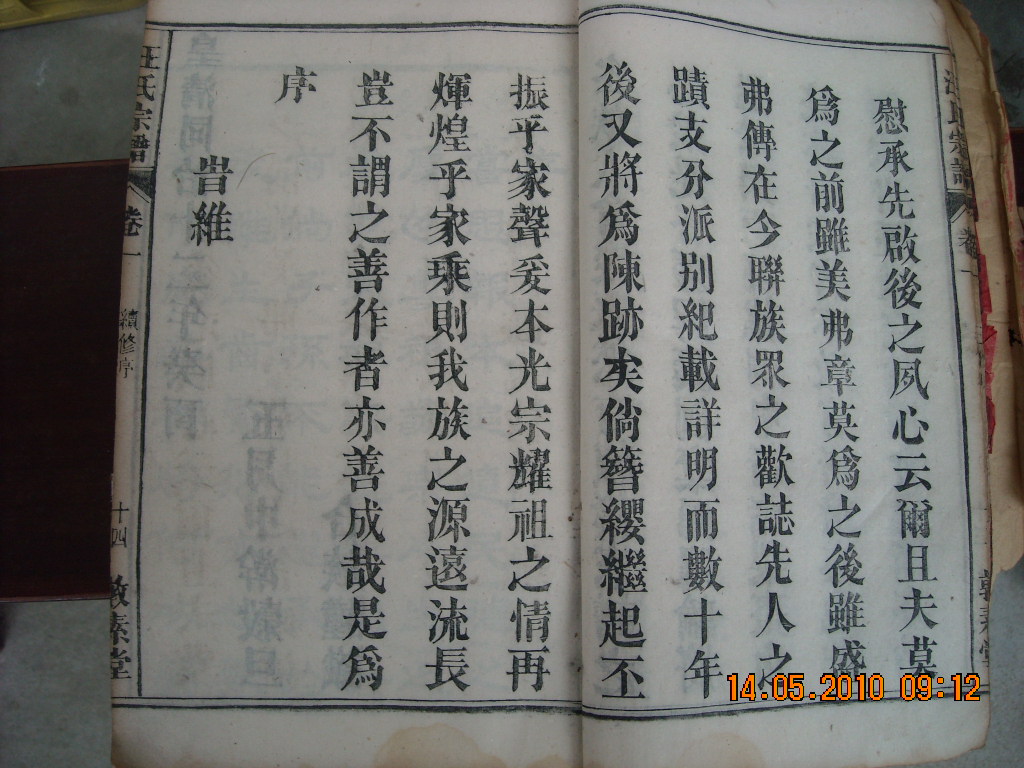 慰承先啟後之夙心云爾且夫莫
為之前雖美弗章莫為之後雖盛
弗傳在今聯族眾之歡誌先人之
蹟支分派別紀載詳明而數十年
後又將為陳跡矣倘簪纓繼起丕
振乎家聲爰本光宗耀祖之情再
輝煌乎家乘則我族之源遠流長
豈不謂之善作者亦善成哉是為
序
旹維
汪氏宗譜 卷一 續修序 十四 敦素堂
14.05.2010 09:12